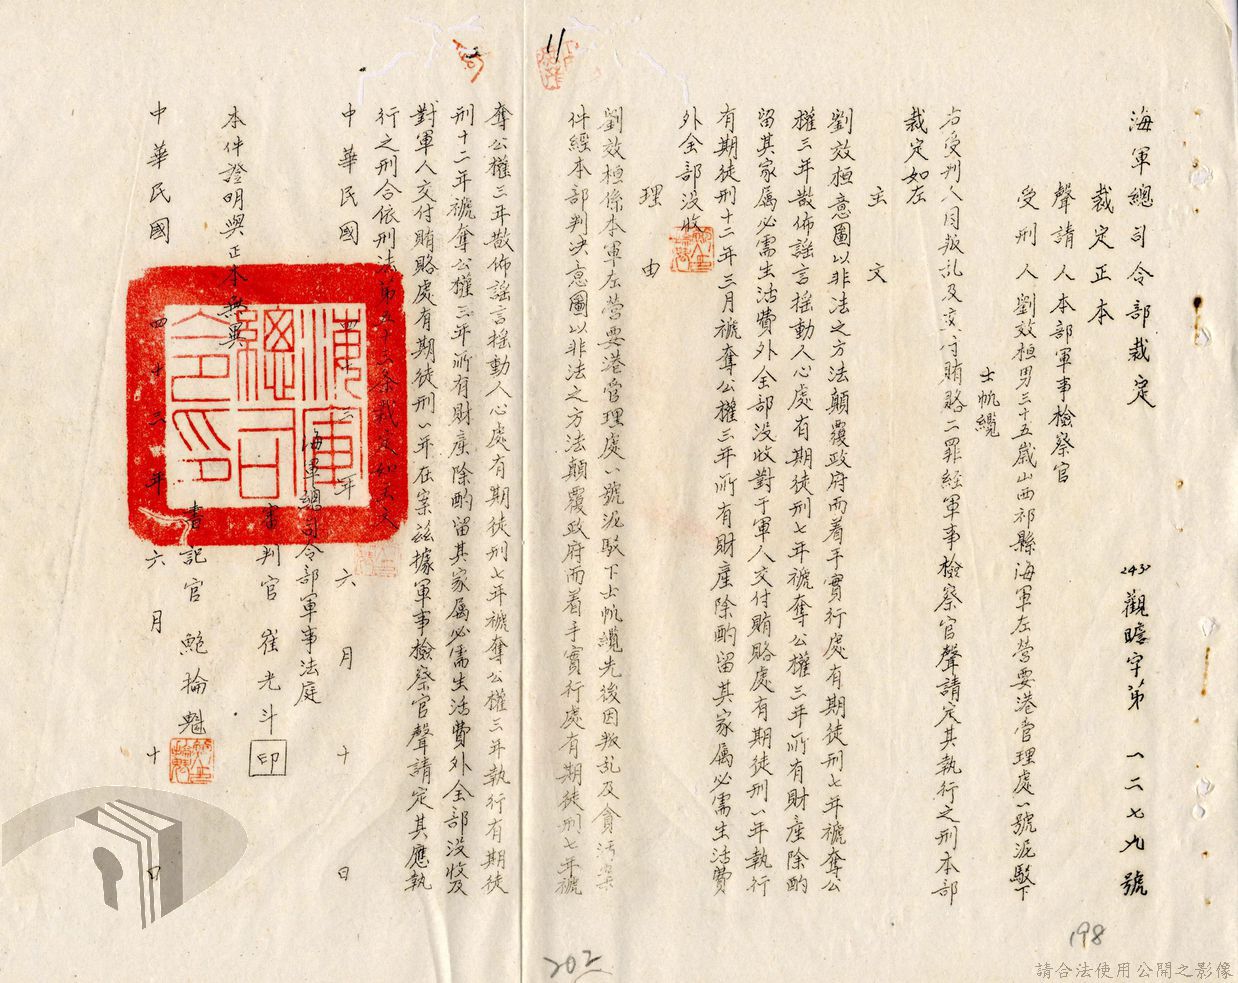 海軍總司令部裁定
(43)觀瞻字第一二七九號
裁定正本
聲請人本部軍事檢察官
受刑人劉效桓男三十五歲山西祁縣海軍左營要港管理處一號泥駁下
士帆纜
右受刑人因叛乱及交付賄賂二罪經軍事檢察官聲請定其執行之刑本部
裁定如左
主文
劉效桓意圖以非法之方法顛覆政府而着手實行處有期徒刑七年褫奪公
權三年散佈謡言搖動人心處有期徒刑七年褫奪公權三年所有財產除酌
留其家属必需生活費外全部没收對于軍人交付賄賂處有期徒刑一年執行
有期徒刑十二年三月褫奪公權三年所有財產除酌留其家属必需生活費
外全部没收
理由
劉效桓係本軍左營要港管理處一號泥駁下士帆纜先後因叛乱及貪污案
件經本部判决意圖以非法之方法顛覆政府而着手實行處有期徒刑七年褫
奪公權三年散佈謡言搖動人心處有期徒刑七年褫奪公權三年執行有期徒
刑十二年褫奪公權三年所有財產除酌留其家属必需生活費外全部没收及
對軍人交付賄賂處有期徒刑一年在案茲據軍事檢察官聲請定其應執
行之刑合依刑法第五十三条裁定如主文
中華民國四十三年六月十日
海軍總司令部軍事法庭
審判官崔光斗
印
本件證明與正本無異
書記官鮑掄魁
中華民國四十三年六月十日
海軍總司令印
11
198
202
請合法使用公開之影像